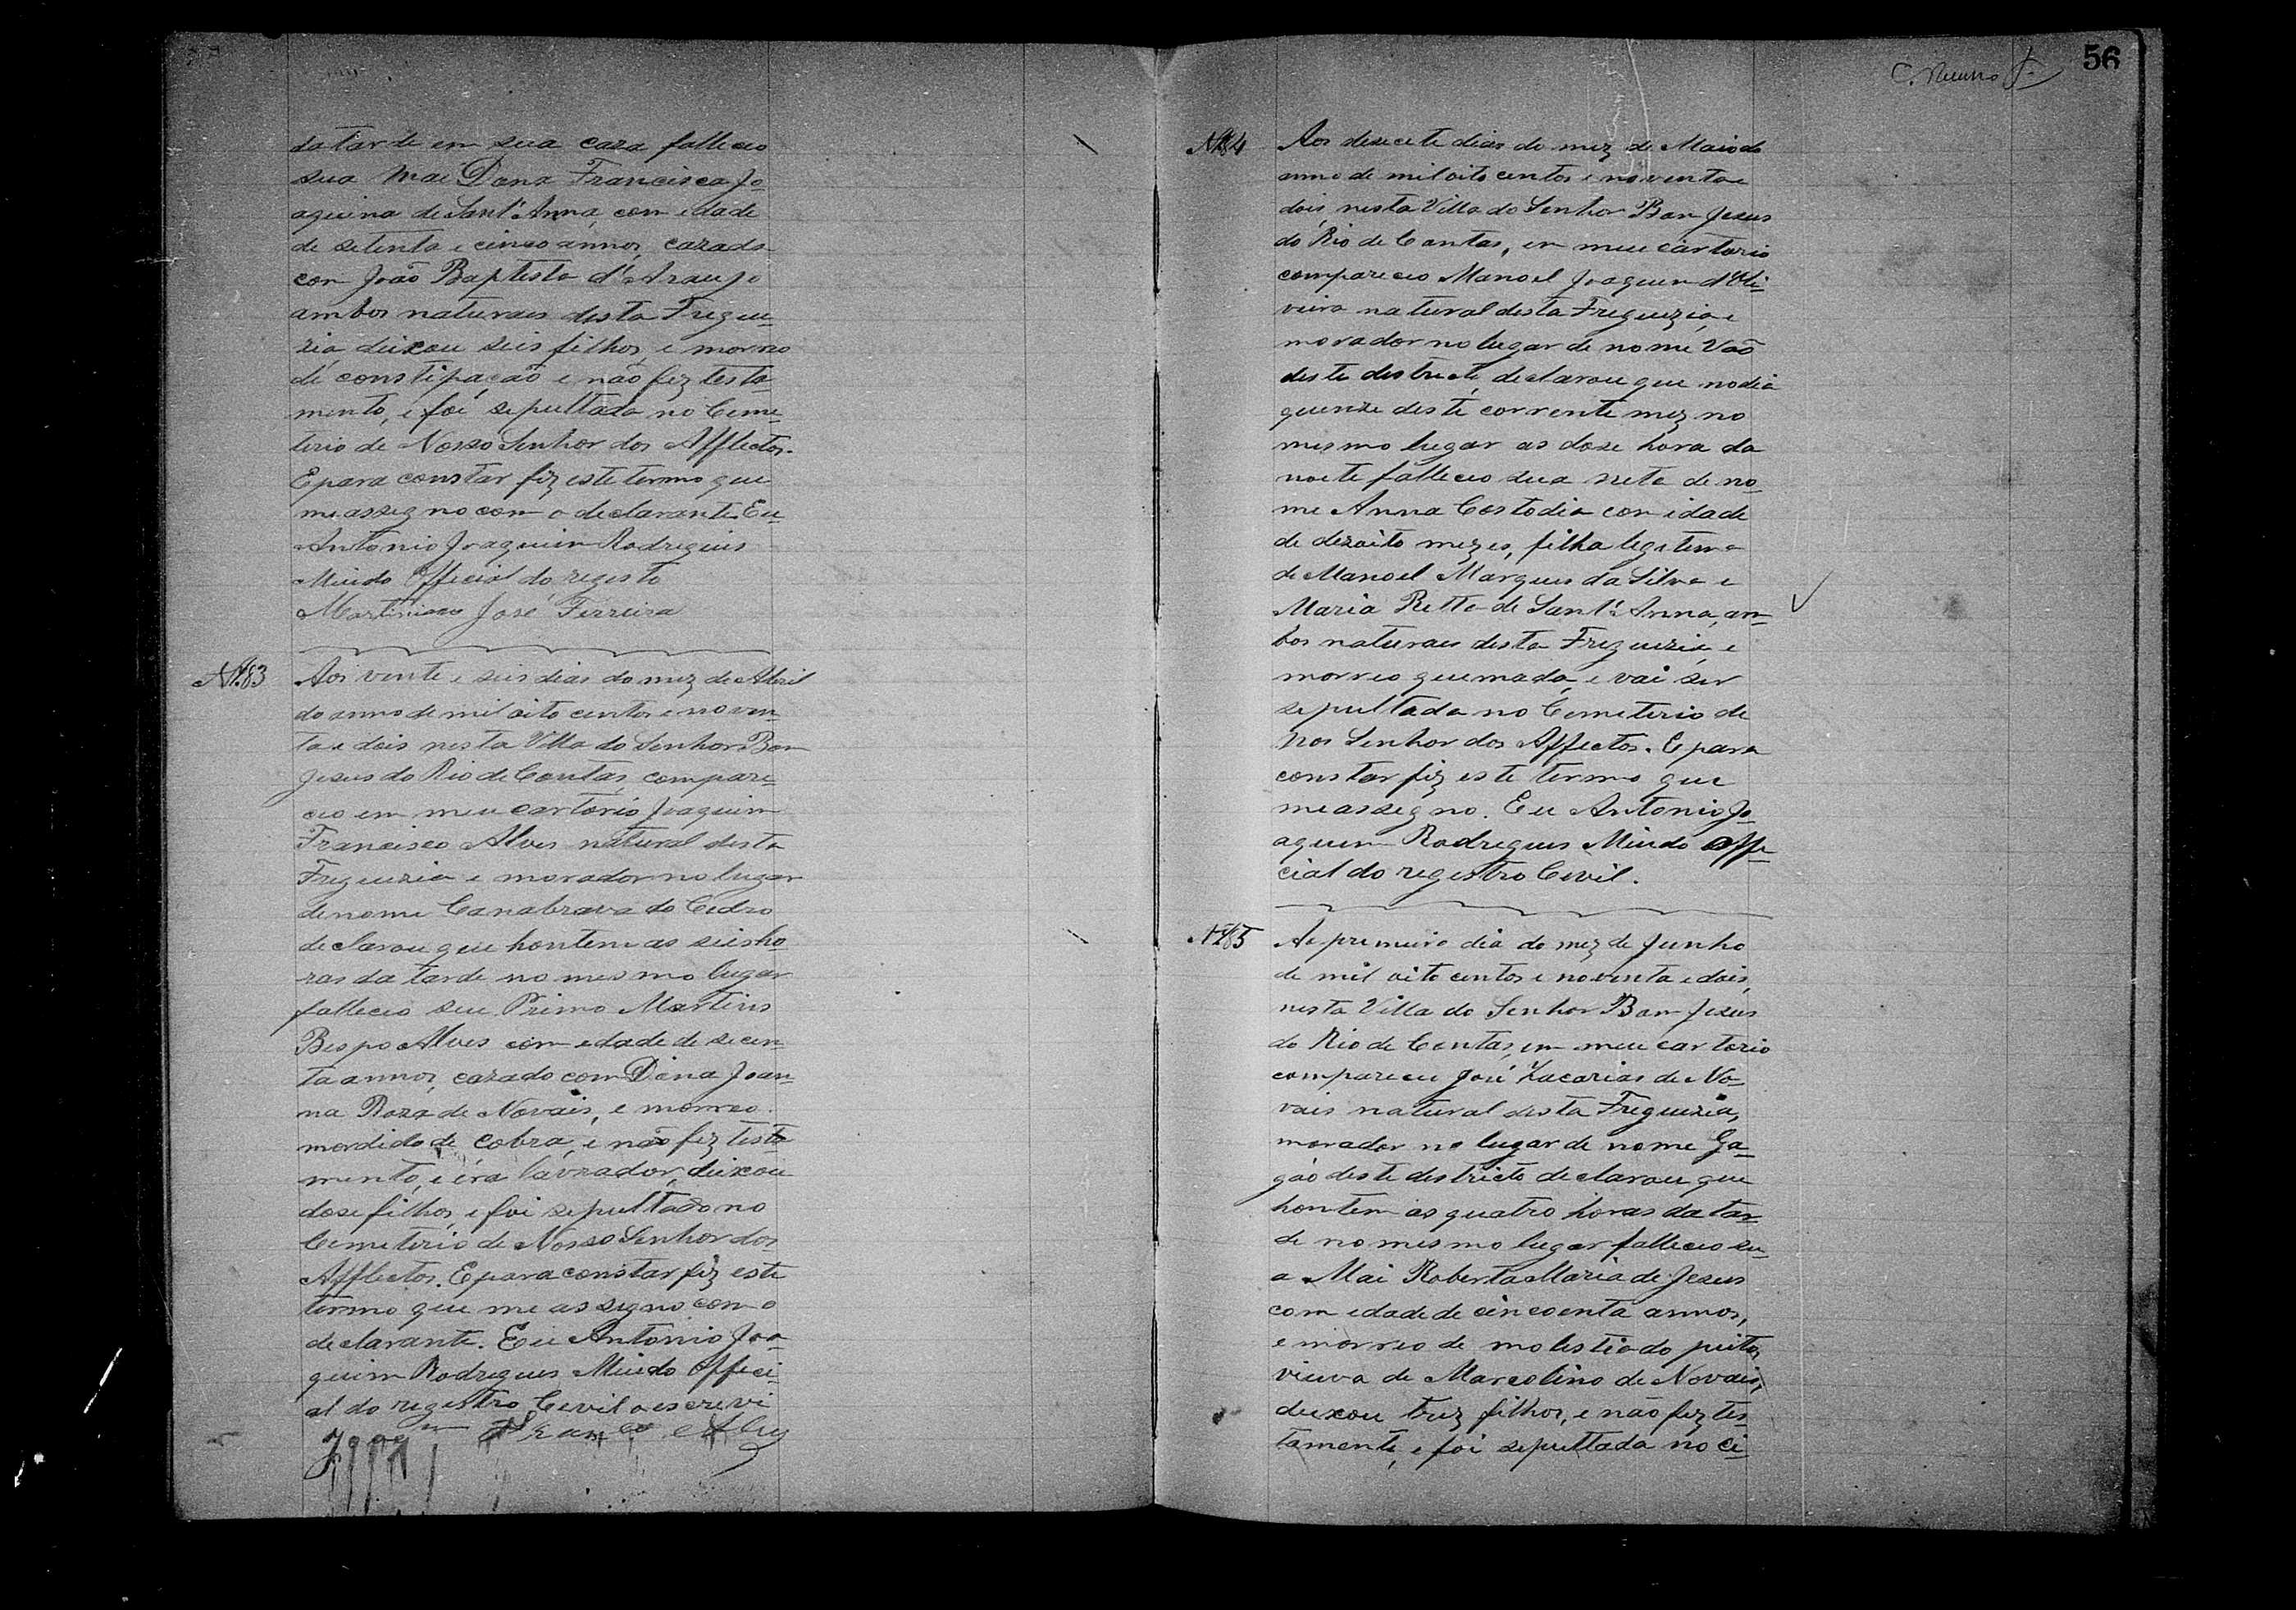 da tarde em sua caza falleceo
sua Mae Dona Francisca Jo
aquina de Sant'Anna, com edade
de setenta e cinco annos, cazada
com João Baptista d'Araujo
ambos naturaes desta Fregue-
zia, deixou seis filhos, e morreo
de constipação e não fez testa-
mento, e foi sepultada no Ceme
terio de Nosso Senhor dos Afflectos.
E para constar fiz este termo que
me assegno com o declarante. Eu
Antonio Joaquim Rodrigues
Miudo Official do registo
Martiniano José Ferreira
Nº 83
Aos vente e seis dias do mez de Abril
do anno de mil oito centos e noven-
ta e dois nesta Villa do Senhor Bom
Jesus do Rio de Contas, compare-
ceo em meu cartorio Joaquim
Francisco Alves natural desta
Freguezia e morador no lugar
de nome Canabrava do Cedro
declarou que hontem as seis ho
ras da tarde no mesmo lugar
falleceo seu Primo Martins
Bespo Alves com edade de secen-
ta annos, cazado com Dona Joan-
na Roza de Novais, e morreo
mordido de cobra, e não fez testa
mento, e éra lavrador, deixou
dose filhos, e foi sepultado no
Cemeterio de Nosso Senhor dos
Afflectos. E para constar fiz este
termo que me assegno com o
declarante. Eu Antonio Joa-
quim Rodrigues Miudo Offeci-
al do registro Cevil o escrevi
Joaqm Franco Alves
56
Nº 84
Aos desecete dias do mez de Maio do
anno de mil oito centos e noventa e
dois, nesta Villa do Senhor Bom Jesus
do Rio de Contas, em meu cartorio
compareceo Manoel Joaquim d'Oli-
veira natural desta Freguezia, e
morador no lugar de nome Vaõ
deste destricto, declarou que no dia
quenze deste corrente mez no
mesmo lugar as dose hora da
noite falleceo sua neta de no-
me Anna Costodia com idade
de dezoito mezes, filha legitema
de Manoel Marques da Silva e
Maria Retta de Sant'Anna, am-
bos naturaes desta Freguezia, e
morreo queimada, e vai ser
sepultada no Cemeterio de
Nos Senhor dos Affectos. E para
constar fiz este termo que
me assegno. Eu Antonio Jo-
aquim Rodrigues Miudo offe-
cial do registro Cevil.
Nº 85
Ao premeiro dia do mez de Junho
de mil oito centos e noventa e dois,
nesta Villa do Senhor Bom Jesus
do Rio de Contas, em meu cartorio
compareceu José Zacarias de No-
vais natural desta Freguezia,
morador no lugar de nome Ga-
gáo deste destricto declarou que
hontem as quatro horas da tar-
de no mesmo lugar falleceo su-
a Mai Roberta Maria de Jesus
com edade de cincoenta annos,
e morreo de molestia do peito,
viuva de Marcolino de Novais,
deixou trez filhos, e não fez tes-
tamento, e foi sepultada no Ce-